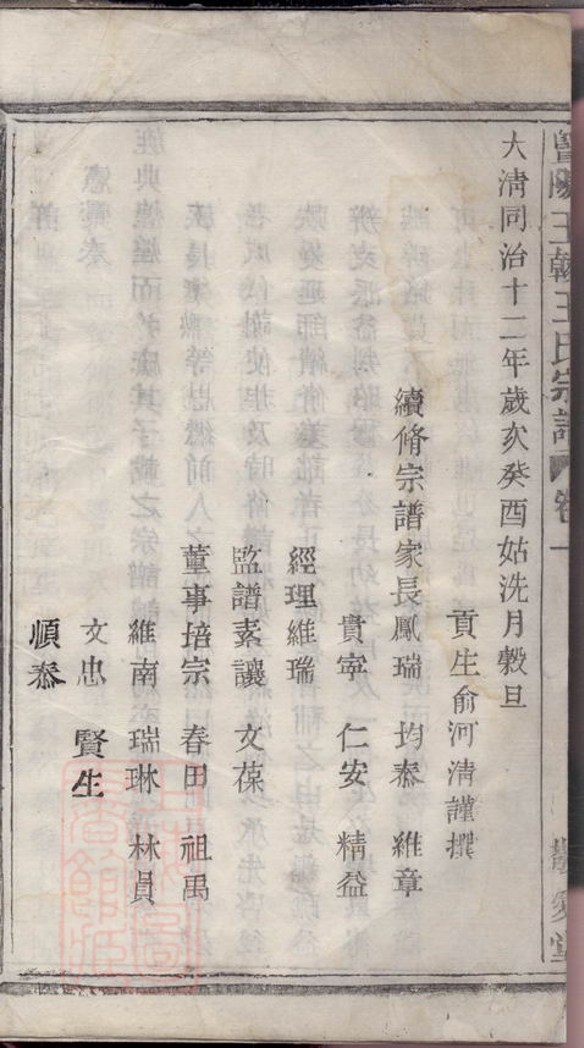 暨陽王韓王氏宗譜 卷一
大淸同治十二年歲次癸酉姑洗月榖旦
貢生俞河淸謹撰
續脩宗譜家長鳳瑞 均泰 維章
貴寧 仁安 精益
經理維瑞
監譜素讓 文葆
董事培宗 春田 祖禹
維南 瑞琳 林員
文忠 賢生
順泰